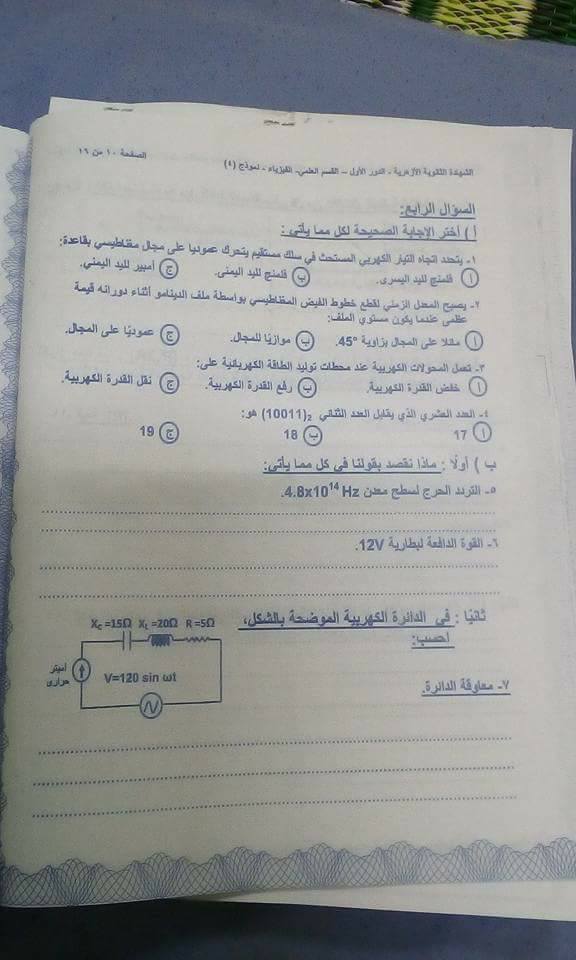 الشهادة الثانوية الأزهرية - الدور الأول – القسم العلمي- الفيزياء - نموذج (٤)
الصفحة ١٠ من ١٦
السؤال الرابع:
أ ) أختر الإجابة الصحيحة لكل مما يأتي :
١- يتحدد اتجاه التيار الكهربي المستحث في سلك مستقيم يتحرك عموديا على مجال مغناطيسي بقاعدة:
أ فلمنج لليد اليسرى. ب فلمنج لليد اليمنى. ج أمبير لليد اليمني.
٢- يصبح المعدل الزمني لقطع خطوط الفيض المغناطيسي بواسطة ملف الدينامو أثناء دورانه قيمة
عظمى عندما يكون مستوي الملف:
أ مائلا على المجال بزاوية 45°. ب موازيًا للمجال. ج عموديًا على المجال.
٣- تعمل المحولات الكهربية عند محطات توليد الطاقة الكهربائية على:
أ خفض القدرة الكهربية. ب رفع القدرة الكهربية. ج نقل القدرة الكهربية.
٤- العدد العشري الذي يقابل العدد الثنائي (10011)₂ هو:
أ 17 ب 18 ج 19
ب ) أولًا : ماذا نقصد بقولنا في كل مما يأتي:
٥- التردد الحرج لسطح معدن 4.8x10¹⁴ Hz.
٦- القوة الدافعة لبطارية 12V.
ثانيًا : في الدائرة الكهربية الموضحة بالشكل،
احسب:
X_C =15Ω X_L =20Ω R =5Ω
أميتر
حراري
V=120 sin ωt
٧- معاوقة الدائرة.